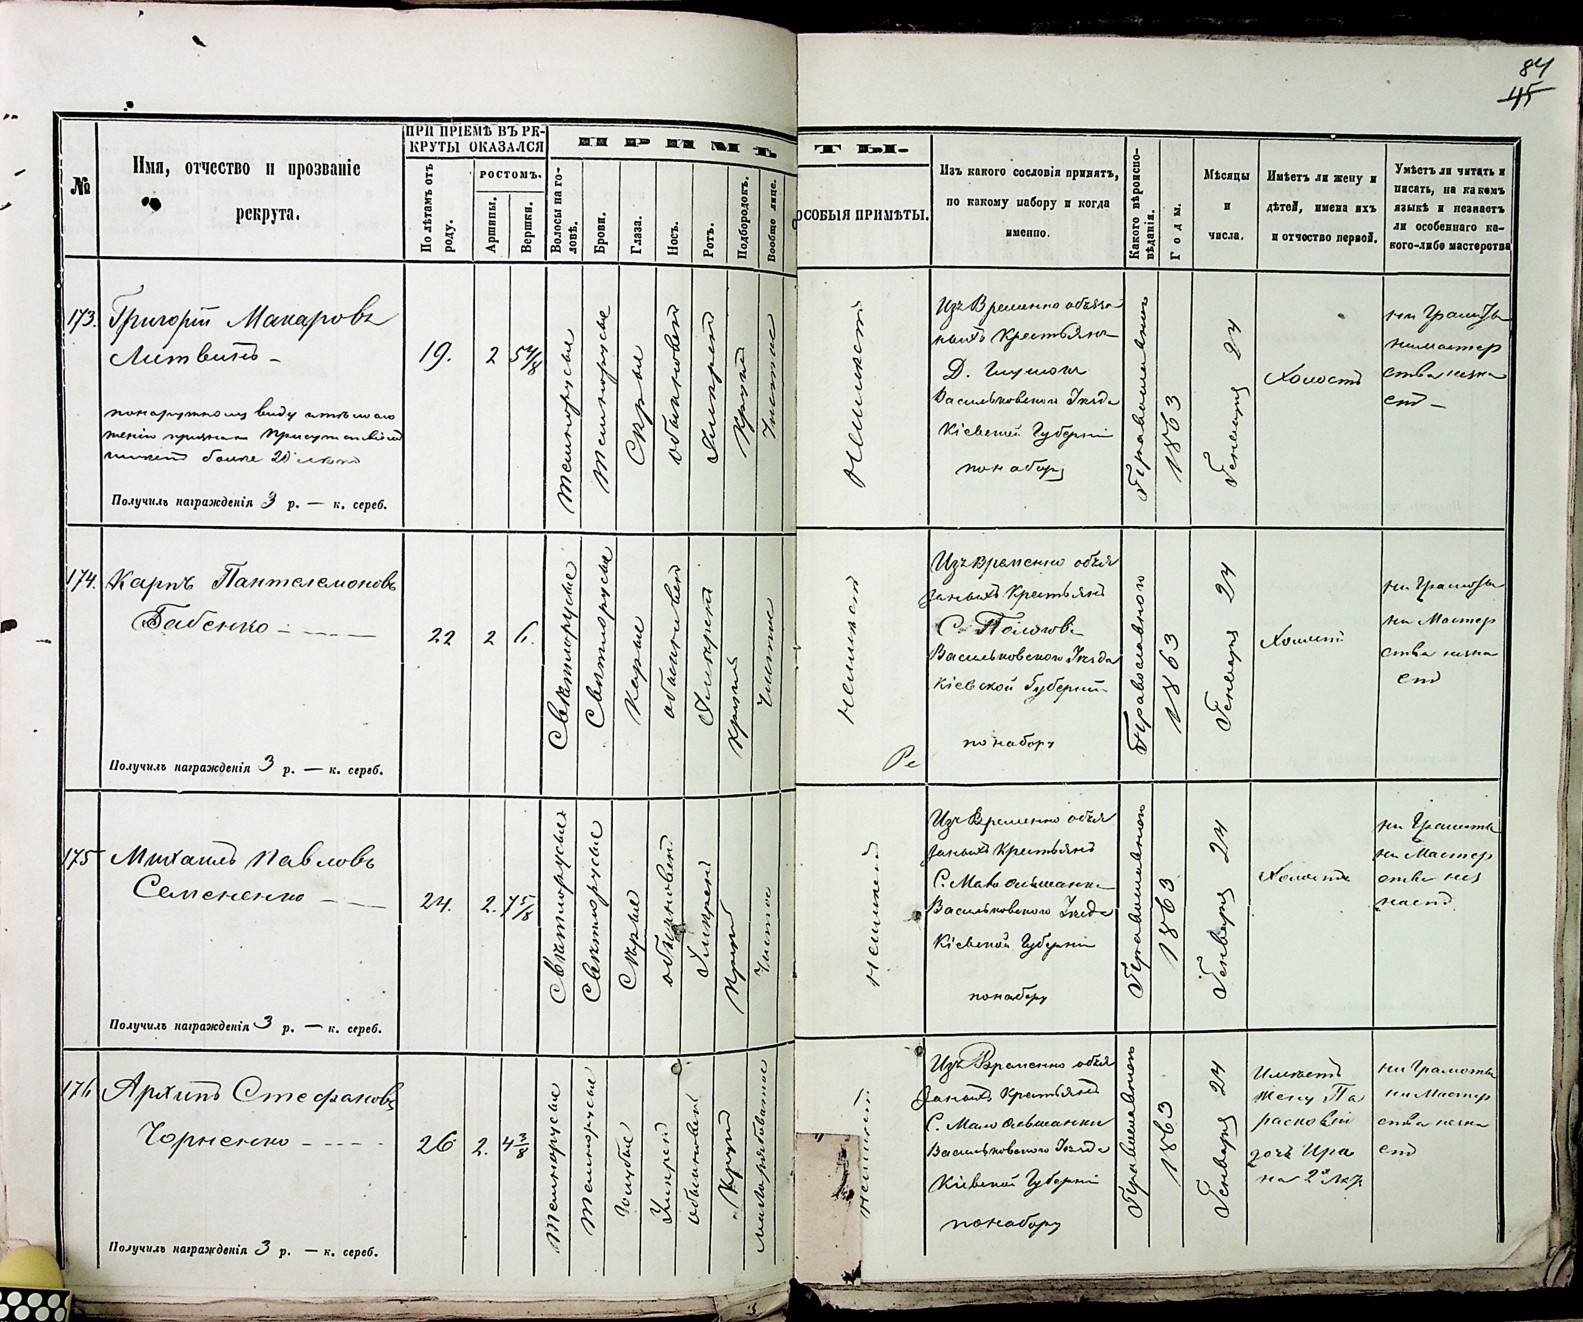 84
45
№
Имя, отчество и прозваніе
рекрута.
ПРИ ПРІЕМѢ ВЪ РЕ-
КРУТЫ ОКАЗАЛСЯ
По лѣтамъ отъ
роду.
РОСТОМЪ.
Аршины.
Вершки.
ПРИМѢТЫ.
Волосы на го-
ловѣ.
Брови.
Глаза.
Носъ.
Ротъ.
Подбородокъ.
Вообще лице.
ОСОБЫЯ ПРИМѢТЫ.
Изъ какого сословія принятъ,
по какому набору и когда
именно.
Какого вѣроиспо-
вѣданія.
Годы.
Мѣсяцы
и
числа.
Имѣетъ ли жену и
дѣтей, имена ихъ
и отчество первой.
Умѣетъ ли читать и
писать, на какомъ
языкѣ и незнаетъ
ли особеннаго ка-
кого-либо мастерства
173.
Григорій Макаровъ
Литвинъ
понаружному виду
признан Присутствіем
более 20
Получилъ награжденія 3 р. — к. сереб.
19.
2
5 4/8
Темнорусые
Темнорусые
Сѣрые
обыкновен
Умѣрен
Кругл
Чистое
Неимѣетъ
Изъ Временно обяза
ныхъ Крестьянъ
Д.
Васильковскаго Уѣзда
Кіевской Губерніи
по набору
Православнаго
1863
Генваря 24
Холостъ
ни Грамоты
нимастер
ства незна
етъ
174.
Карпъ Пантелемоновъ
Бабенко
Получилъ награжденія 3 р. — к. сереб.
22
2
6.
Свѣтлорусые
Свѣтлорусые
Карие
обыкновен
Умѣрен
Кругл
Чистое
Неимѣетъ
Ре
Изъ Временно обяз
занныхъ Крестьянъ
С.
Васильковскаго Уѣзда
Кіевской Губерніи
по набору
Православнаго
1863
Генваря 24
Холостъ
ни Грамоты
ни Мастер
ства незна
етъ
175
Михаилъ Павловъ
Семененко
Получилъ награжденія 3 р. — к. сереб.
24.
2.
7 5/8
Свѣтлорусые
Свѣтлорусые
Сѣрые
обыкновен
Умѣрен
Кругл
Чистое
Неимѣетъ
Изъ Временно обяз
занныхъ Крестьянъ
С. Мало ольшанки
Васильковскаго Уѣзда
Кіевской Губерніи
понабору
Православнаго
1863
Генваря 24
Холостъ
ни Грамоты
ни Мастер
ства нез
наетъ
176
Архипъ Стефановъ
Чорненко
Получилъ награжденія 3 р. — к. сереб.
26
2.
Темнорусые
Темнорусые
Голубые
Умѣрен
обыкновен
Кругл
Неимѣетъ
Изъ Временно обяз
занныхъ Крестьянъ
С. Мало ольшанки
Васильковскаго Уѣзда
Кіевской Губерніи
понабору
Православнаго
1863
Генваря 24
Имѣетъ
жену Па
расковію
дочь Ири
ну 2х лѣт
ни Грамоты
ни Мастер
ства незна
етъ